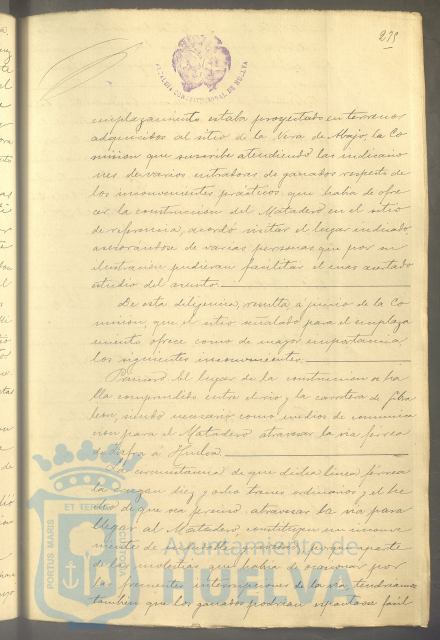 275
ALCALDIA CONSTITUCIONAL DE HUELVA
emplazamiento estaba proyectado en terrenos
adquiridos al sitio de la Vera de Abajo, la Co
mision que suscribe atendiendo las indicacio
nes de varios entradores de ganados respecto de
los inconvenientes prácticos que habia de ofre
cer la construccion del Matadero en el sitio
de referencia, acordó visitar el lugar indicado,
asesorándose de varias personas que por su
ilustracion pudieran facilitar el mas acertado
estudio del asunto.
De esta diligencia, resulta á juicio de la Co
mision, que el sitio señalado para el emplaza
miento ofrece como de mayor importancia,
los siguientes inconvenientes.
Primero. El lugar de la construccion se ha
lla comprendido entre el rio y la carretera de Gibra
leon, siendo necesario como medios de comunica
cion para el Matadero atravesar la via férrea
de Zafra á Huelva.
La circunstancia de que dicha linea férrea
la cruzan diez y ocho trenes ordinarios y el he
cho de que sea preciso atravesar la via para
llegar al Matadero constituyen un inconve
niente de gravedad, porque aparte
de la molestia que habia de ocasionar por
las frecuentes interrupciones de la via tendriamos
tambien que los ganados podrian espantarse facil
PORTUS MARIS ET TERRAE CUSTODIA
Ayuntamiento de
HUELVA